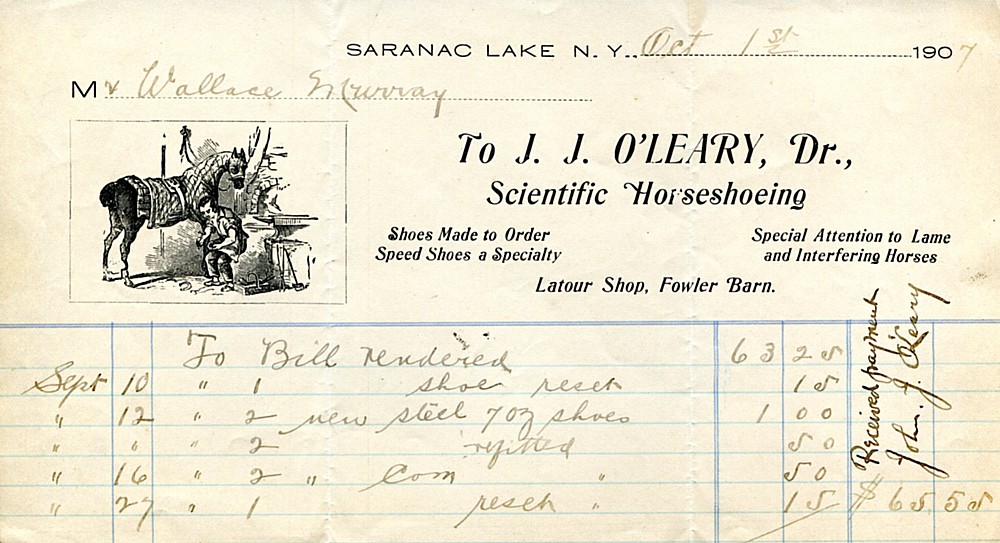 SARANAC LAKE N. Y. Oct 1st 1907
Mr Wallace Murray
To J. J. O'LEARY, Dr.,
Scientific Horseshoeing
Shoes Made to Order
Speed Shoes a Specialty
Special Attention to Lame
and Interfering Horses
Latour Shop, Fowler Barn.
To Bill rendered 63 25
Sept 10 " 1 shoe reset 15
" 12 " 2 new steel 7 oz shoes 1 00
" " " 2 refitted 50
" 16 " 2 " Com " 50
" 27 " 1 reset " 15
$ 65 55
Received payment
John. J. O'Leary